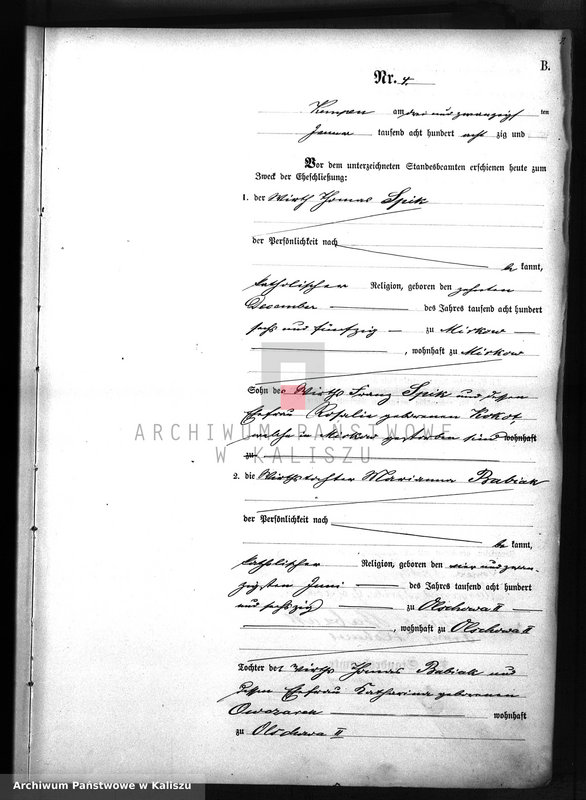 B.
Nr. 4.
Kempen am drei und zwanzigsten
Januar tausend acht hundert acht zig und
Vor dem unterzeichneten Standesbeamten erschienen heute zum
Zweck der Eheschließung:
1. der Wirth Thomas Spik
der Persönlichkeit nach
be kannt,
katholischer Religion, geboren den zehnten
December des Jahres tausend acht hundert
sechs und fünfzig zu Mirkow
, wohnhaft zu Mirkow
Sohn des Wirths Franz Spik und dessen
Ehefrau Rosalie geborenen Kokot,
welche in Mirkow gestorben sind wohnhaft
zu
ARCHIWUM PAŃSTWOWE
W KALISZU
2. die Wirthstochter Marianna Babiak
der Persönlichkeit nach
be kannt,
katholischer Religion, geboren den vier und zwan-
zigsten Juni des Jahres tausend acht hundert
und sechszig zu Olschowa II
, wohnhaft zu Olschowa II
Tochter des Wirths Thomas Babiak und
dessen Ehefrau Katharina geborenen
Owczarek wohnhaft
zu Olschowa II
Archiwum Państwowe w Kaliszu